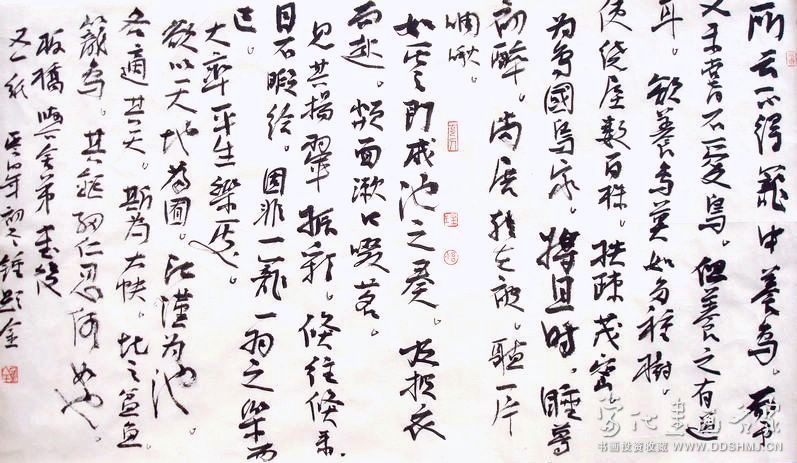 所云不得籠中養鳥。而予
又未嘗不愛鳥。但養之有道
耳。欲養鳥莫如多種樹。
使繞屋數百株。扶疎茂密
為鳥國鳥家。将旦時，睡夢
初醒。尚展轉在被。聽一片
啁啾。
如雲門咸池之奏。及披衣
而起。頮面漱口啜茗。
見其揚翬振彩。倏往倏来。
目不暇给。固非一籠一羽之樂而
已。
大率平生樂處。
欲以天地為囿。江漢為池。
各適其天。斯為大快。比之盆魚
籠鳥。其鉅細仁忍何如也。
板橋與舍弟書後
又一紙 年初冬
书画投资收藏 WWW.DDSHMJ.CN